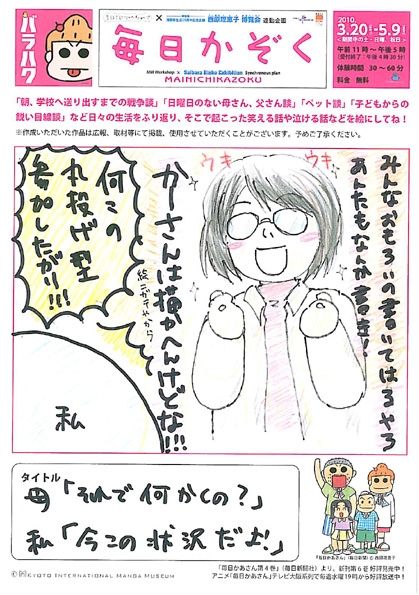 バラハク
毎日かぞく
MM Workshop × Saibara Rieko Exhibition Synchronous plan
MAINICHIKAZOKU
西原理恵子 博覧会 連動企画
2010.
3.20(土)-5.9(日)
<期間中の土・日曜、祝日>
午前11時〜午後5時
(受付終了:午後4時30分)
体験時間 30〜60分
料金 無料
「朝、学校へ送り出すまでの戦争談」「日曜日のない母さん、父さん談」「ペット談」「子どもからの
鋭い目線談」など日々の生活をふり返り、そこで起こった笑える話や泣ける話などを絵にしてね!
※作成いただいた作品は広報、取材等にて掲載、使用させていただくことがございます。予めご了承ください。
みんなおもろいの書いてはるやろ
あんたもなんか書き!
ウキ
ウキ
かーさんは描かへんけどな!!!
絵ニガテやから
何この
丸投げ型
参加したがり!!!
私
タイトル
母「それで何かくの?」
私「今この状況だよ!」
「毎日かあさん」(毎日新聞) © 西原理恵子
© KYOTO INTERNATIONAL MANGA MUSEUM
「毎日かあさん第4巻」(毎日新聞社)より。新刊第6巻 好評発売中!
アニメ「毎日かあさん」テレビ大阪系列で毎週水曜19時から好評放送中!